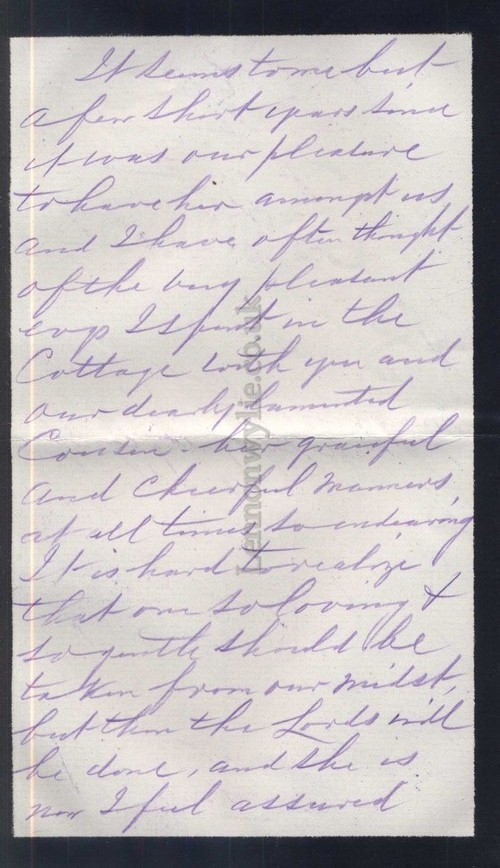 It seems to me but
a few short years since
it was our pleasure
to have her amongst us,
and I have often thought
of the very pleasant
evgs I spent in the
Cottage with you and
our dearly lamented
Cousin. her graceful
and cheerful manners,
at all times so endearing
It is hard to realize
that one so loving &
so gentle should be
taken from our midst,
but then the Lords will
be done, and she is
now I feel assured
Lennonwylie.co.uk